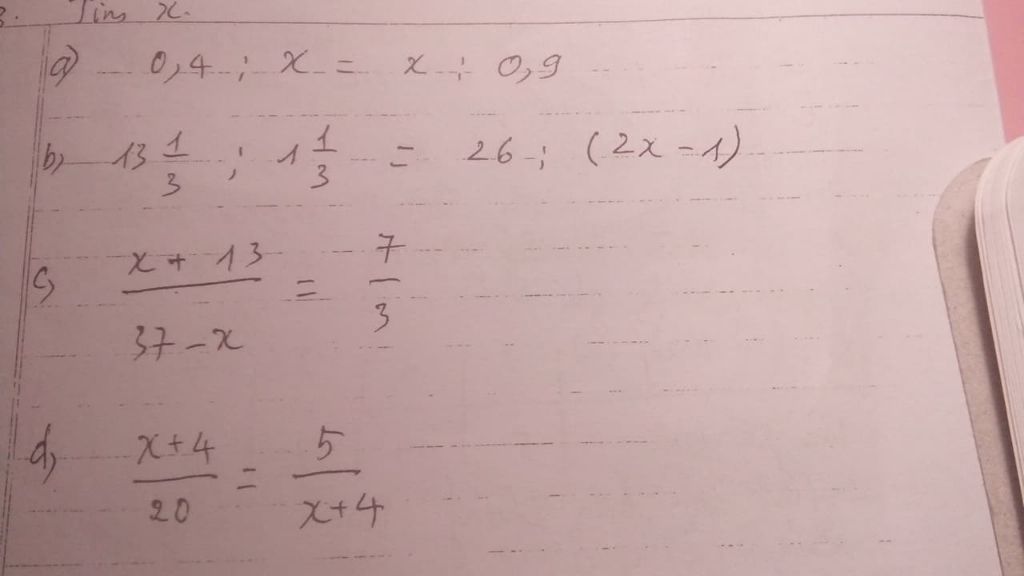 3. Tìm x.
a) 0,4 : x = x : 0,9
b, 13 1/3 : 1 1/3 = 26 : (2x - 1)
c, (x + 13)/(37 - x) = 7/3
d, (x+4)/20 = 5/(x+4)